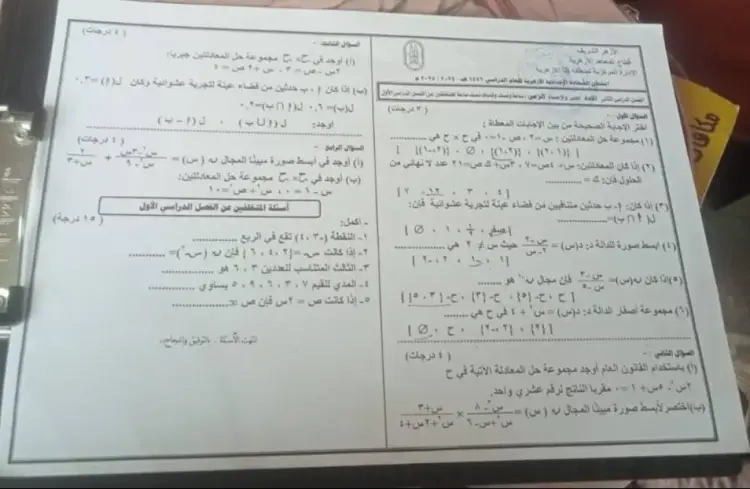 الأزهر الشريف
قطاع المعاهد الأزهرية
الإدارة المركزية لمنطقة الأزهرية
امتحان الشهادة الإعدادية الأزهرية للعام الدراسي ١٤٤٦ هـ - ٢٠٢٤ / ٢٠٢٥ م
السؤال الأول :-
(٣ درجات)
اختر الإجابة الصحيحة من بين الإجابات المعطاة :
(١) مجموعة حل المعادلتين : س = ٢ ، ص - ١ = ٠ في ح × ح هي ............
[ {(٢،١)} ، {(١،٢)} ، Ø ، {(٢،-١)} ]
(٢) إذا كان المعادلتين: س + ٤ص = ٧ ، ٣س + ك ص = ٢١ عدد لا نهائي من
الحلول فإن: ك = ............
[ ٤ ، ٣ ، ١٢ ، ٢ ]
(٣) إذا كان: أ، ب حدثين متنافيين من فضاء عينة لتجربة عشوائية فإن:
ل(أ ∩ ب) = ............
(٤) أبسط صورة للدالة د: د(س) = حيث س ≠ ٢ هي ............
(٥) إذا كان ن(س) = فإن مجال ن⁻¹ هو ............
(٦) مجموعة أصفار الدالة د: د(س) = س² + ٤ في ح هي ............
[ {٢} ، {٢،-٢} ، ح ، Ø ]
السؤال الثاني :-
(٤ درجات)
(أ) باستخدام القانون العام أوجد مجموعة حل المعادلة الآتية في ح
٢س² - ٥س + ١ = ٠ مقرباً الناتج لرقم عشري واحد.
(ب) اختصر لأبسط صورة مبيناً المجال ن (س) = س³ - ٨ / س² + س - ٦ × س + ٣ / س² + ٢س + ٤
السؤال الثالث :-
(٤ درجات)
(أ) أوجد في ح × ح مجموعة حل المعادلتين جبرياً:
٢س - ص = ٣ ، س + ٢ص = ٤
(ب) إذا كان أ، ب حدثين من فضاء عينة لتجربة عشوائية وكان ل(أ) = ٠,٣
ل(ب) = ٠,٦ ، ل(أ ∩ ب) = ٠,٢
أوجد: ل(أ ∪ ب) ، ل(أ - ب)
السؤال الرابع :-
(٤ درجات)
(أ) أوجد في أبسط صورة مبيناً المجال ن (س) = س² - ٣س / س² - ٩ +
(ب) أوجد في ح × ح مجموعة حل المعادلتين:
س - ١ = ٠ ، س² + ص² = ١٠
أسئلة المتخلفين من الفصل الدراسي الأول
- أكمل:
(١٥ درجة)
١- النقطة (-٣ ، ٤) تقع في الربع ............
٢- إذا كانت س = {٢ ، ٤ ، ٦} فإن ن (س²) = ............
٣- الثالث المتناسب للعددين ٣ ، ٦ هو ............
٤- المدى للقيم ٧ ، ٣ ، ٦ ، ٩ ، ٥ يساوي ............
٥- إذا كانت ص = ٢س فإن ص ∝ ............
انتهت الأسئلة - بالتوفيق والنجاح